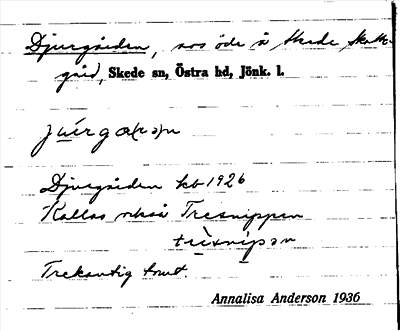 Djurgården, sos öde å Skede Skatte-
gård, Skede sn, Östra hd, Jönk. l.
juʹrga(rə)n
Djurgården kb 1926
Kallas också Tresnippen
trèsnipən
Trekantig tomt.
Annalisa Anderson 1936